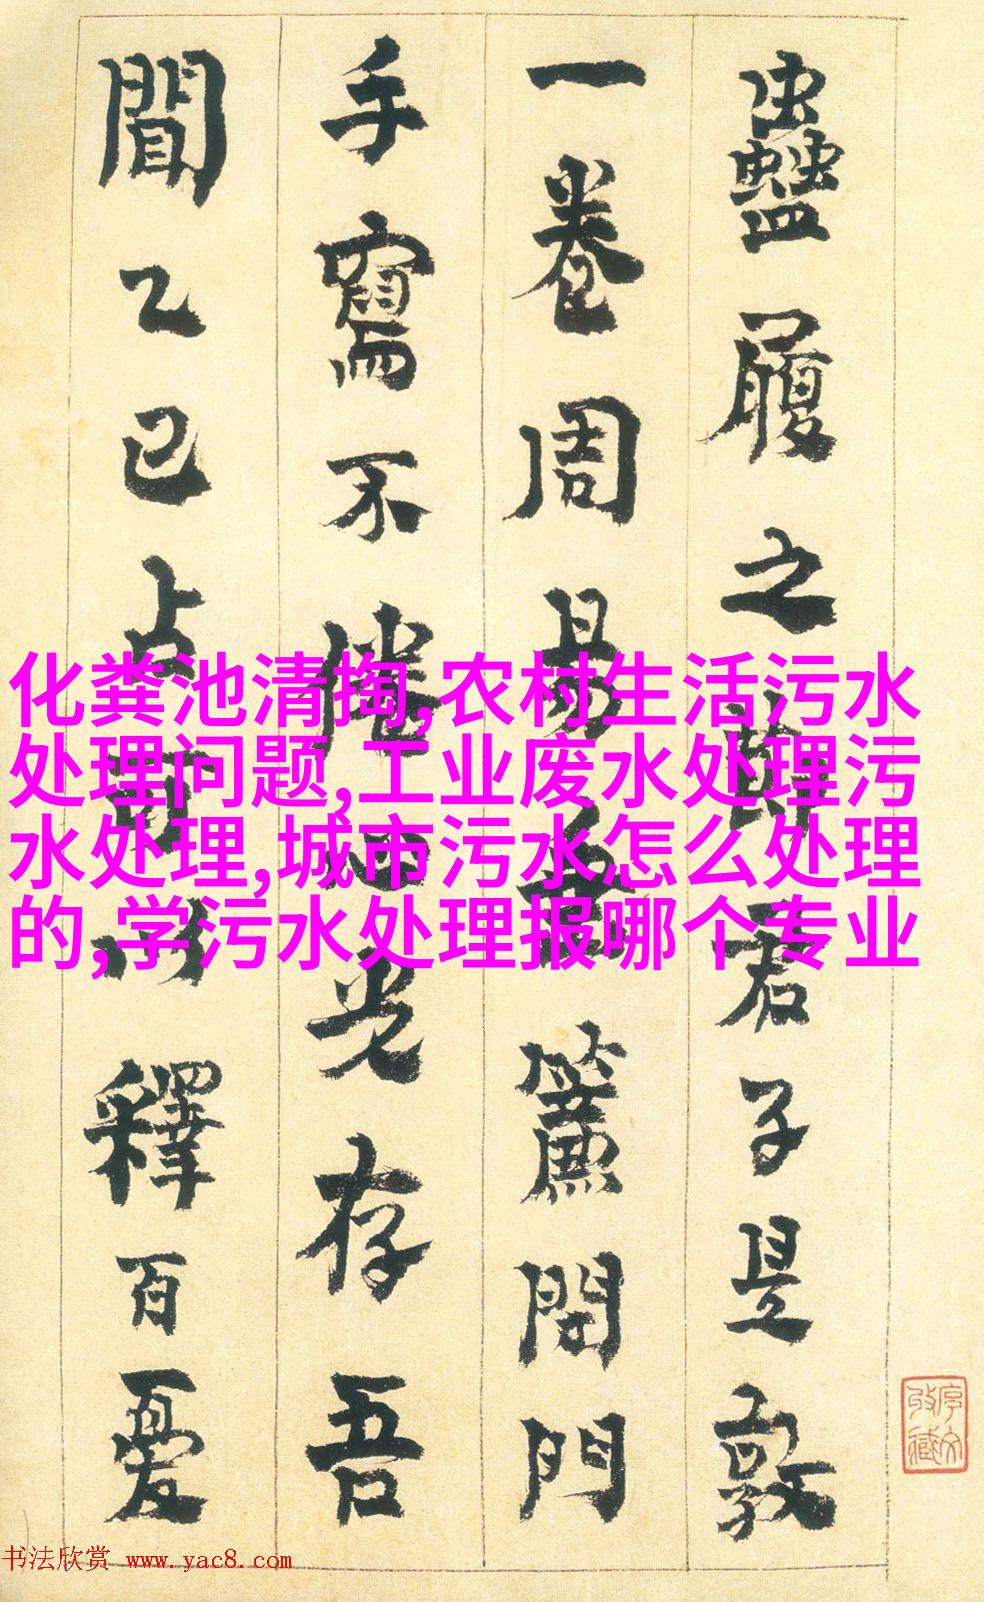 蠱履之節君子是敦
一卷周易垂簾閉門
手寫不倦心光存吾
聞乙巳占可以釋百憂
化粪池清掏,农村生活污水
处理问题,工业废水处理污
水处理,城市污水怎么处理
的,学污水处理报哪个专业
书法欣赏 www.yac8.com